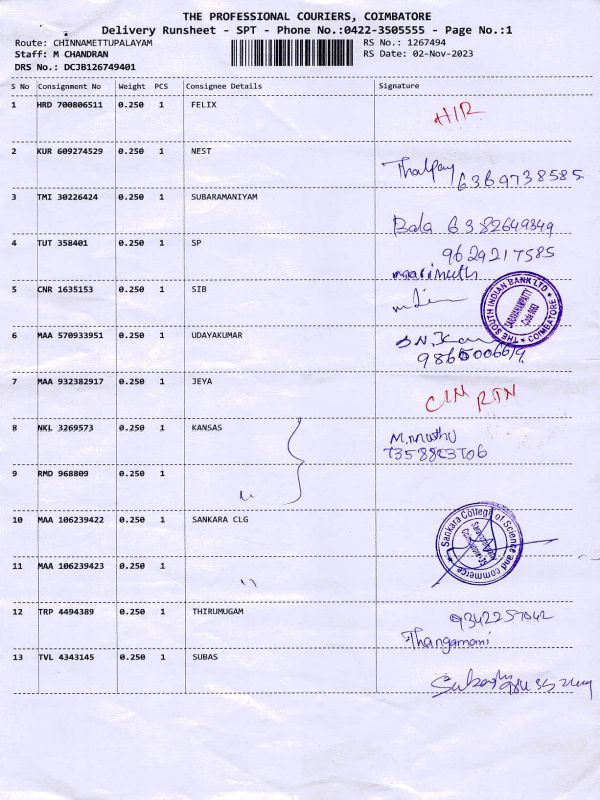 THE PROFESSIONAL COURIERS, COIMBATORE
Delivery Runsheet - SPT - Phone No.:0422-3505555 - Page No.:1
Route: CHINNAMETTUPALAYAM RS No.: 1267494
Staff: M CHANDRAN RS Date: 02-Nov-2023
DRS No.: DCJB126749401
S No Consignment No Weight PCS Consignee Details Signature
1 HRD 700806511 0.250 1 FELIX
H/R
2 KUR 609274529 0.250 1 NEST
6369738585
3 TMI 30226424 0.250 1 SUBARAMANIYAM
Bala 6382649349
4 TUT 358401 0.250 1 SP
9629217585
marimuth
5 CNR 1635153 0.250 1 SIB
THE SOUTH INDIAN BANK LTD
COIMBATORE
6 MAA 570933951 0.250 1 UDAYAKUMAR
7 MAA 932382917 0.250 1 JEYA
RTN
8 NKL 3269573 0.250 1 KANSAS
M.muthu
9 RMD 968809 0.250 1
10 MAA 106239422 0.250 1 SANKARA CLG
Sankara College of Science and commerce
11 MAA 106239423 0.250 1
12 TRP 4494389 0.250 1 THIRUMUGAM
Thangamani
13 TVL 4343145 0.250 1 SUBAS